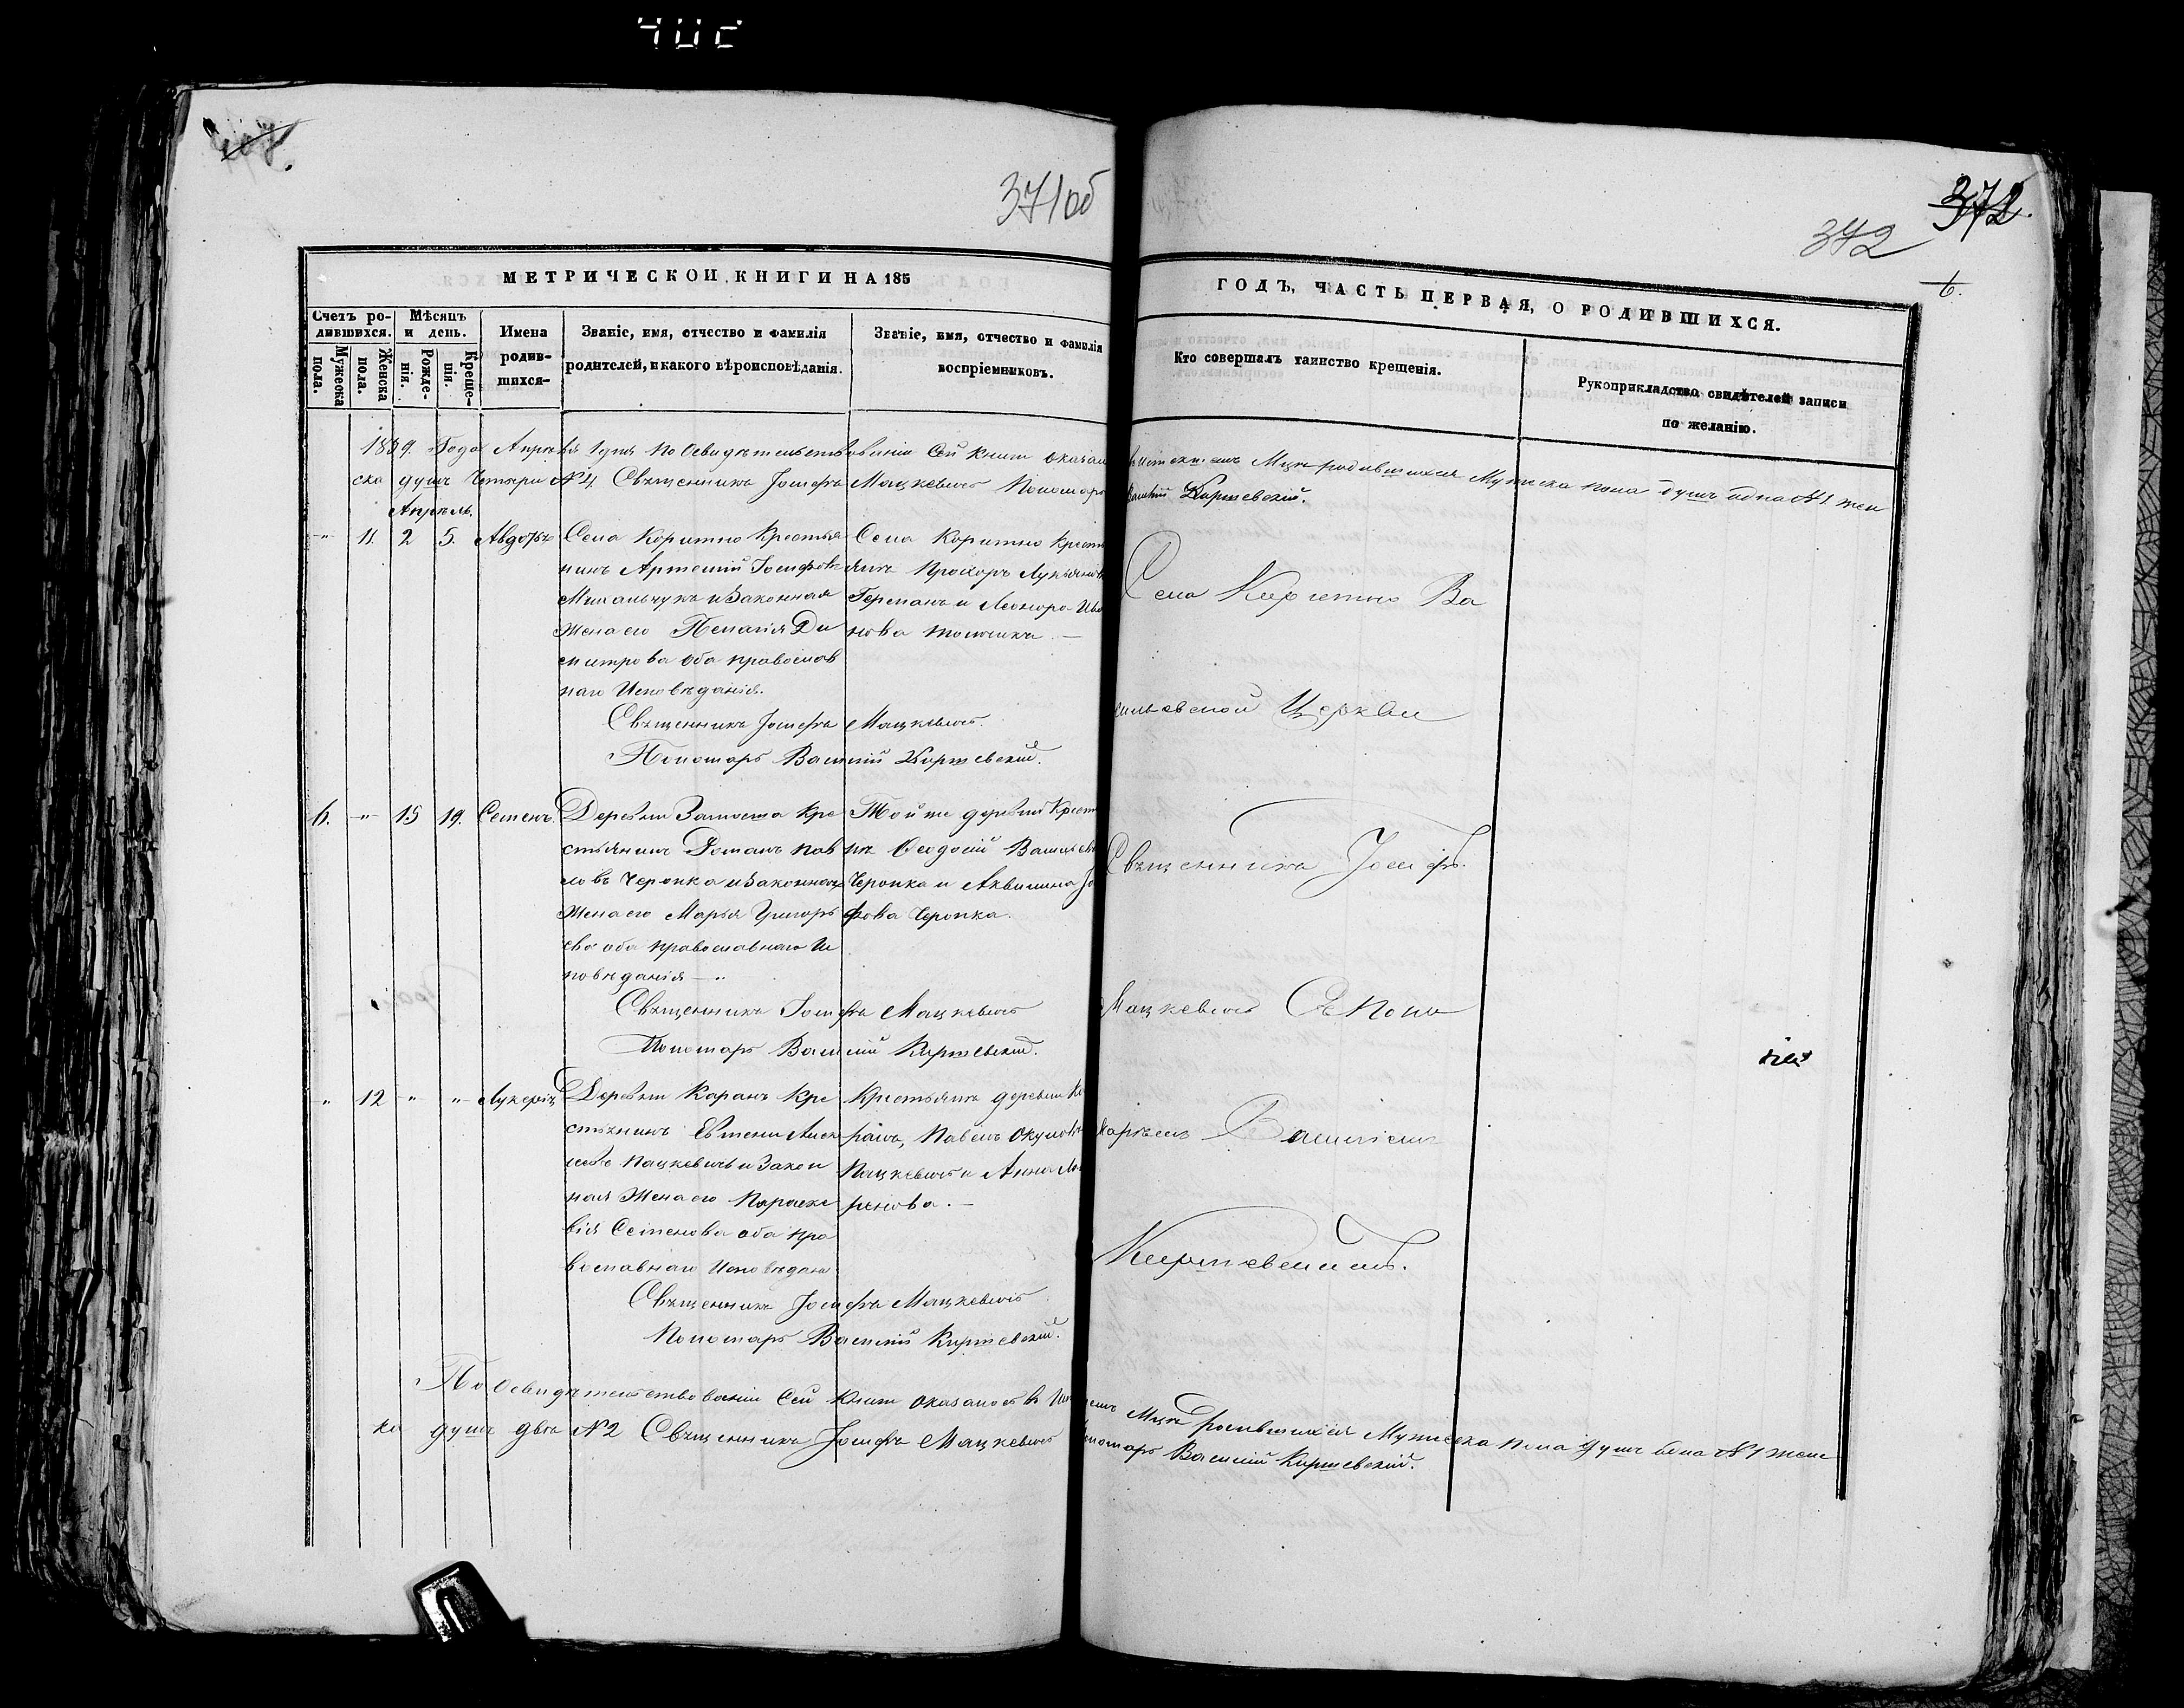 371об
372
372.
6.
МЕТРИЧЕСКОЙ КНИГИ НА 185
ГОДЪ, ЧАСТЬ ПЕРВАЯ, О РОДИВШИХСЯ.
Счетъ ро-
дившихся.
Мужеска
пола.
Женска
пола.
Мѣсяцъ
и день.
Рожде-
нія.
Креще-
нія.
Имена
родив-
шихся-
Званіе, имя, отчество и фамилія
родителей, и какого вѣроисповѣданія.
Званіе, имя, отчество и фамилія
воспріемниковъ.
Кто совершалъ таинство крещенія.
Рукоприкладство свидѣтелей записи
по желанію.
1859. Года Апрѣля 1 дня по Освидѣтельствованіи Сей Книги оказа Мцѣ родившихся Мужеска пола душъ одна №1 жен
ска душъ Четыри №4 Священникъ Іосифъ Мацкевичъ Пономарь Киржевскій.
Апрѣль.
11 2 5. Села Коритно Крестья
нинъ Артемій Іосифовъ
Михальчукъ и Законная
Жена его Пелагія Ди
митрова оба православ
наго Исповѣданія.
Села Коритно Крест
янъ Прохоръ Лукьянов
Германъ и
нова
Священникъ Іосифъ Мацкевичъ.
Пономарь Василій Киржевскій.
6. 15 19. Семенъ. Деревни Замоста Кре
стьянинъ Романъ Пав
ловъ Черопка и Законная
Жена его Марья Григорь
ева оба православнаго Ис
повѣданія
Той же деревни Крест
нъ Феодосій Васильев
Черопка и Акилина Іо
фова Черопка.
Священникъ Іосифъ Мацкевичъ
Пономарь Василій Киржевскій.
12 Лукерія Деревни Каранъ Кре
стьянинъ Евгени Алек
Пацкевичь и Закон
ная Жена его Параске
вія Семенова оба пра
вославнаго Исповѣдан
Крестьянъ деревни Ка
ранъ, Павелъ
Пацкевичъ и Анна
Священникъ Іосифъ Мацкевичъ
Пономарь Василій Киржевскій.
Села Коритно Ва
сильевской Церкви
Священникъ Іосифъ.
Мацкевичъ Съ Поно
маремъ Василіемъ
Киржевскимъ.
По Освидѣтельствованіи Сей Книги оказалось въ Мцѣ родившихся Мужеска пола душъ №1 женс
ка душъ двѣ №2 Священникъ Іосифъ Мацкевичъ Пономарь Василій Киржевскій.